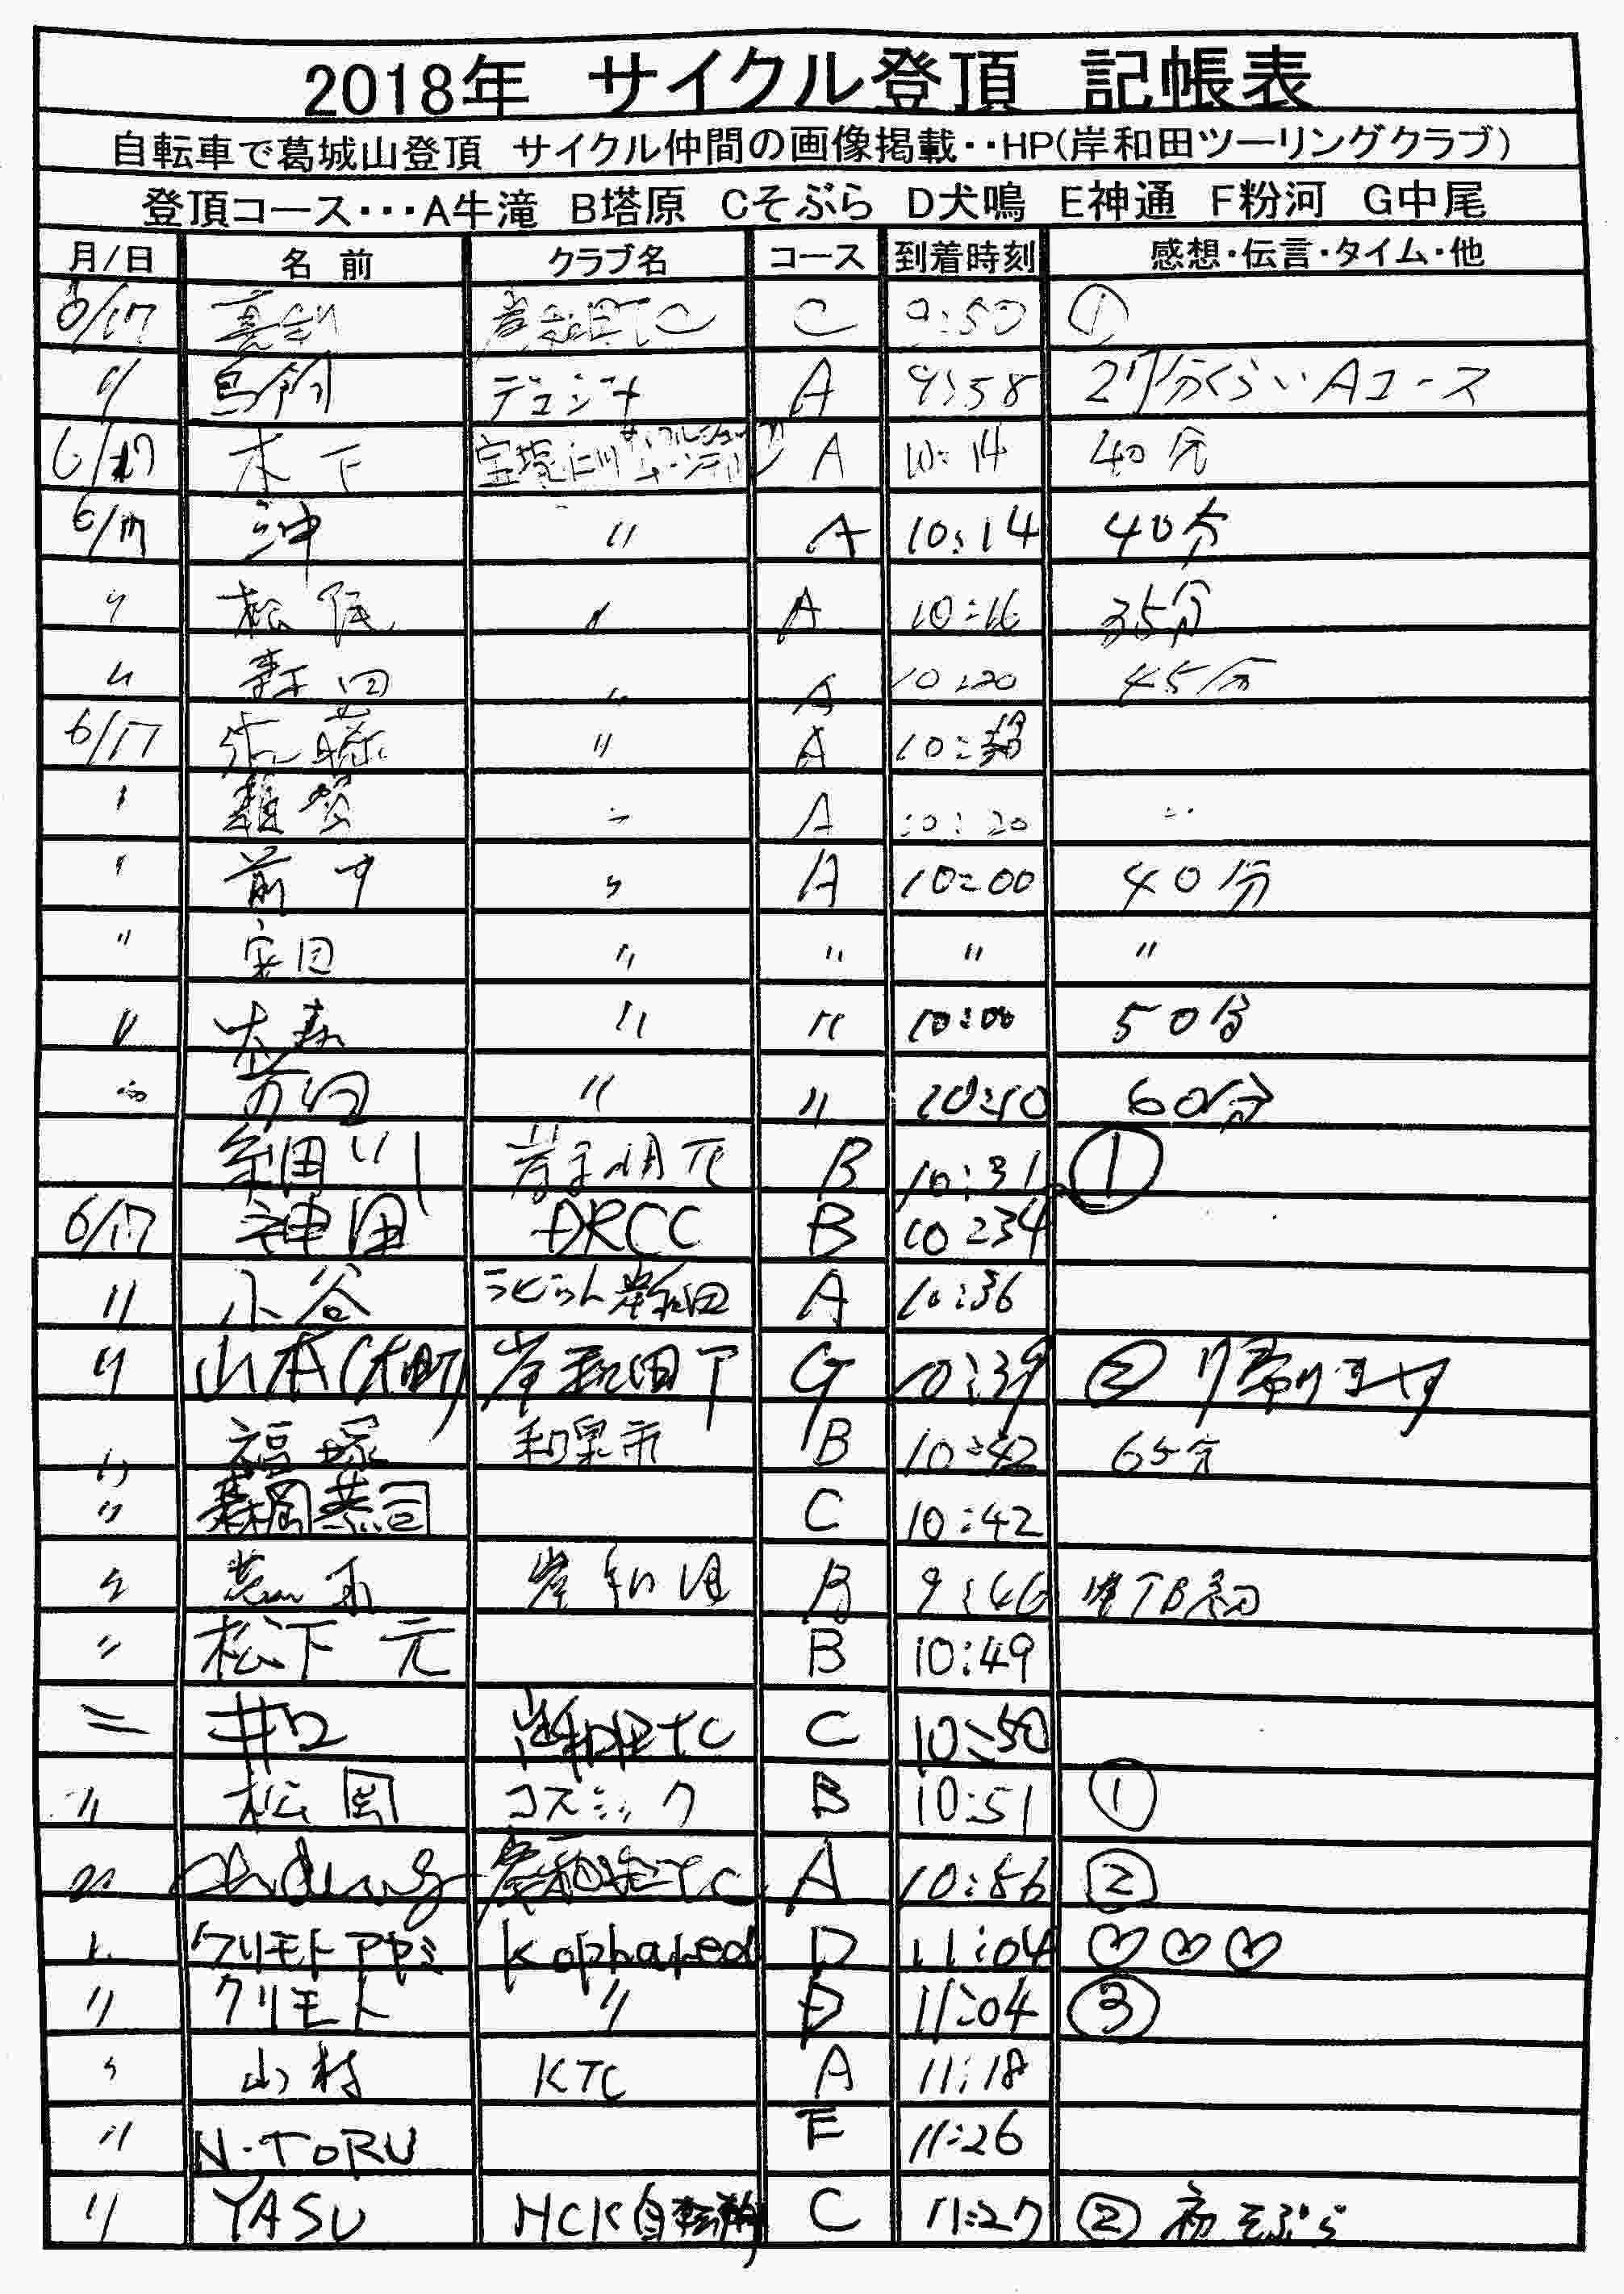 2018年 サイクル登頂 記帳表
自転車で葛城山登頂 サイクル仲間の画像掲載・・HP(岸和田ツーリングクラブ)
登頂コース・・・A牛滝 B塔原 Cそぶら D犬鳴 E神通 F粉河 G中尾
月/日 名前 クラブ名 コース 到着時刻 感想・伝言・タイム・他
6/17 岸和田TC C 9:50 ①
〃 A 9:58 27分くらい Aコース
6/17 木下 宝塚仁川 A 10:14 40分
6/17 沖 〃 A 10:14 40分
〃 松 〃 A 10:16 35分
〃 森田 〃 A 10:20 45分
6/17 〃 A 10:
〃 雑賀 〃 A 10:20 〃
〃 前 〃 A 10:00 40分
〃 〃 〃 〃 〃
〃 大森 〃 〃 10:00 50分
〃 〃 〃 10:10 60分
粂田 B 10:31 ①
6/17 神田 DRCC B 10:34
〃 小谷 ラビット岸和田 A 10:36
〃 山本(大町) 岸和田T G 10:39 ② 帰ります
〃 福塚 和泉市 B 10:42 65分
〃 森岡恭司 C 10:42
〃 岸和田 B 9:46
〃 松下 元 B 10:49
〃 井口 岸和田TC C 10:50
〃 松岡 コスミック B 10:51 ①
〃 岸和田TC A 10:56 ②
〃 クリモトアヤミ Kophaped D 11:04 ♡♡♡
〃 クリモト 〃 D 11:04 ③
〃 山村 KTC A 11:18
〃 N・TORU F 11:26
〃 YASU HCK自転車 C 11:27 ② 初そぶら